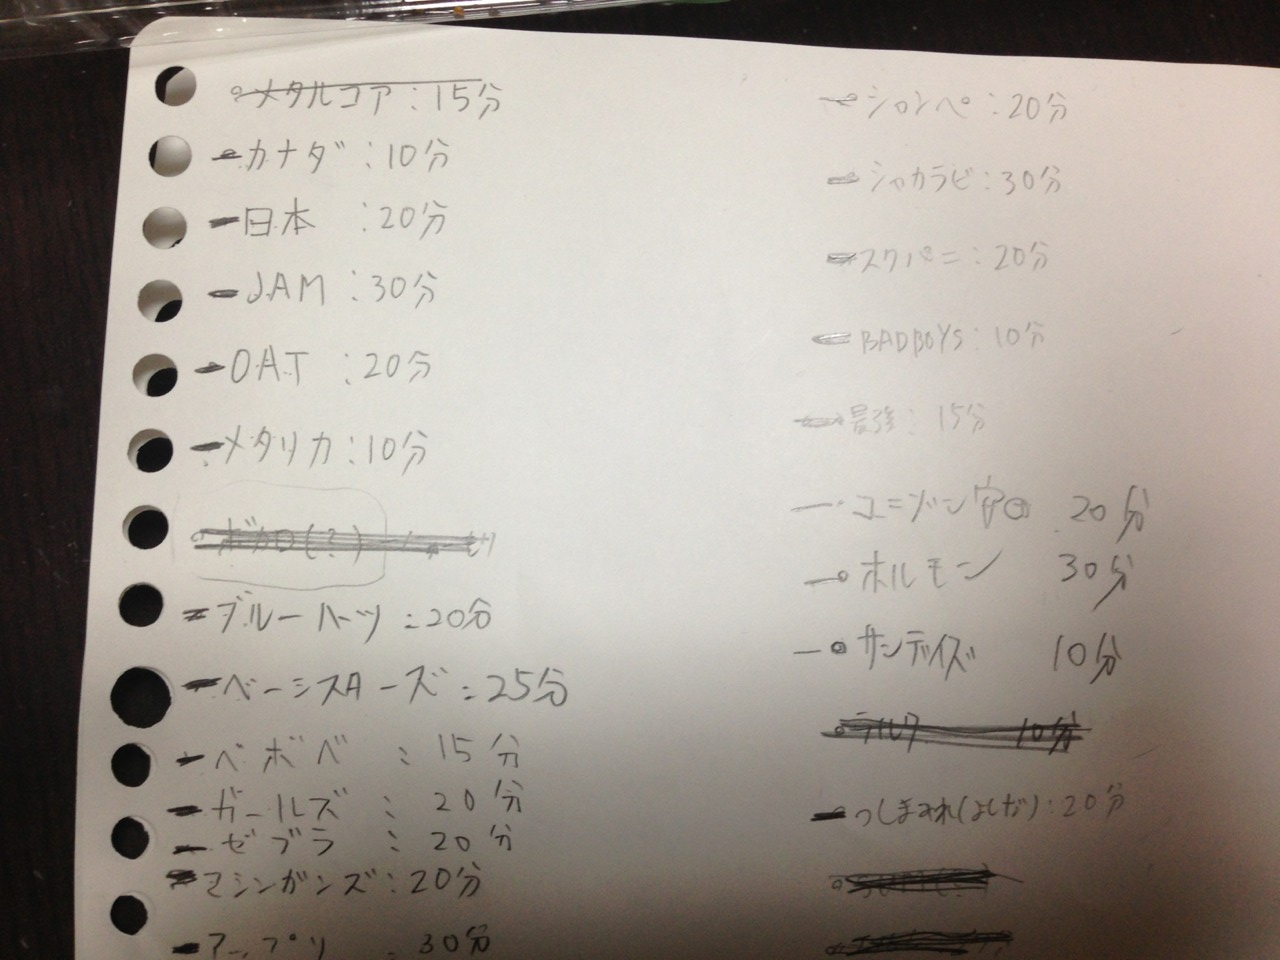 メタルコア：15分
カナダ：10分
日本：20分
JAM：30分
OAT：20分
メタリカ：10分
ボカロ(？)
ブルーハーツ：20分
ベーシスターズ：25分
ベボベ：15分
ガールズ：20分
ゼブラ：20分
マシンガンズ：20分
アップリ：30分
シロンペ：20分
シャカラビ：30分
スクパニ：20分
BADBOYS：10分
最強：15分
ユニゾン 20分
ホルモン 30分
サンデイズ 10分
ラルク 10分
つしまみれ(よしだ)：20分